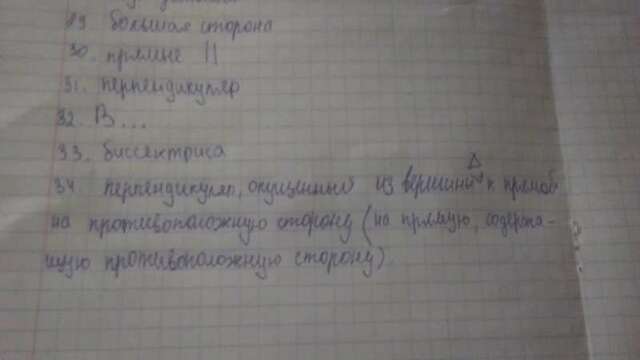 29. большая сторона
30. прямые ||
31. перпендикуляр
32. В...
33. биссектриса
34. перпендикуляр, опущенный из вершины Δ к прямой
на противоположную сторону (на прямую, содержа-
щую противоположную сторону).